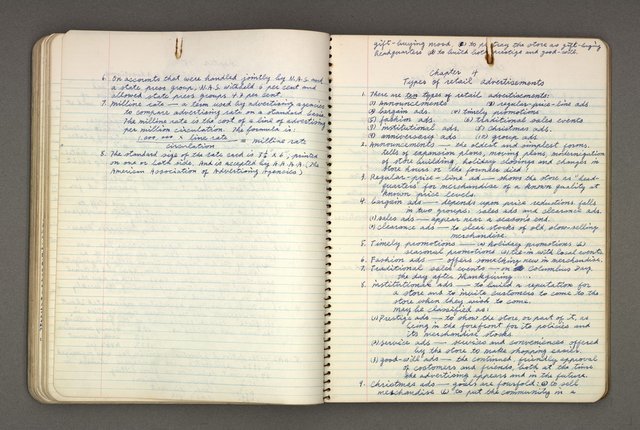 6. On accounts that were handled jointly by N.A.S. and
a state press group, N.A.S. withheld 6 per cent and
allowed state press groups 4 per cent.
7. Milline rate — a term used by advertising agencies
to compare advertising rate on a standard basis.
The milline rate is the cost of a line of advertising
per million circulation. The formula is:
1,000,000 × line rate = milline rate
circulation
8. The standard size of the rate card is 3½ x 6, printed
on one or both side, and is accepted by A.A.A.A. (The
American Association of Advertising Agencies)
gift-buying mood, (c) to portray the store as gift-buying
headquarters (d) to build both prestige and good-will.
Chapter 4
Types of retail advertisements
1. There are ten types of retail advertisements:
(1) announcements (2) regular-price-line ads
(3) bargain ads. (4) timely promotions
(5) fashion ads. (6) traditional sales events
(7) institutional ads. (8) Christmas ads.
(9) anniversary ads (10) group ads
2. Announcements — the oldest and simplest forms,
tells of expansion plans, moving plans, modernization
of store building, holiday closings and changes in
store hours or "the founder died!"
3. Regular-price-line ad — shows the store as "head-
quarters" for merchandise of a known quality at
known price levels.
4. Bargain ads — depends upon price reductions, falls
in two groups: sales ads and clearance ads.
(1) sales ads — appear near a season's end.
(2) clearance ads — to clear stocks of old, slow-selling
merchandise.
5. Timely promotions — (a) holiday promotions (b)
seasonal promotions (c) tie-in with local events.
6. Fashion ads — offers something new in merchandise.
7. Traditional sales events — on Columbus Day,
the day after Thanksgiving.....
8. institutional ads — to build a reputation for
a store and to invite customers to come to the
store when they wish to come.
May be classified as:
(1) Prestige ads — to show the store or part of it, as
being in the forefront for its policies and
its merchandise stocks.
(2) service ads — services and conveniences offered
by the store to make shopping easier.
(3) good-will ads — the continued, friendly approval
of costomers and friends, both at the time
the advertising appears and in the future.
9. Christmas ads — goals are fourfold: (a) to sell
merchandise (b) to put the community in a